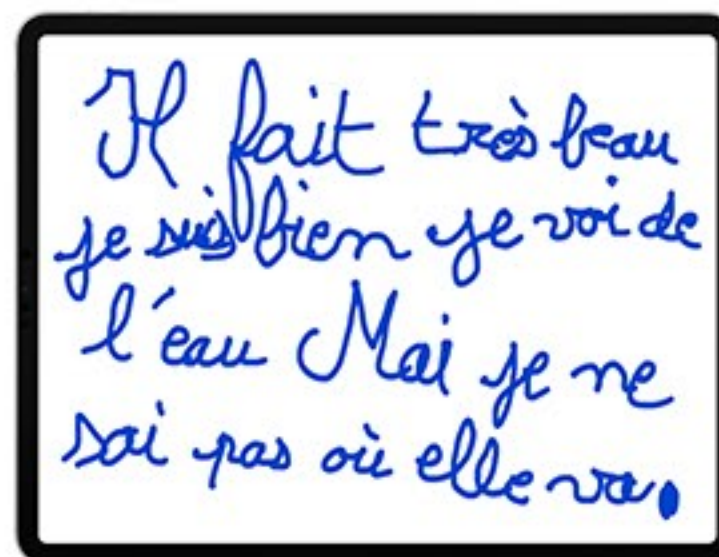 Il fait très beau
je suis bien je voi de
l'eau Mai je ne
sai pas où elle va.